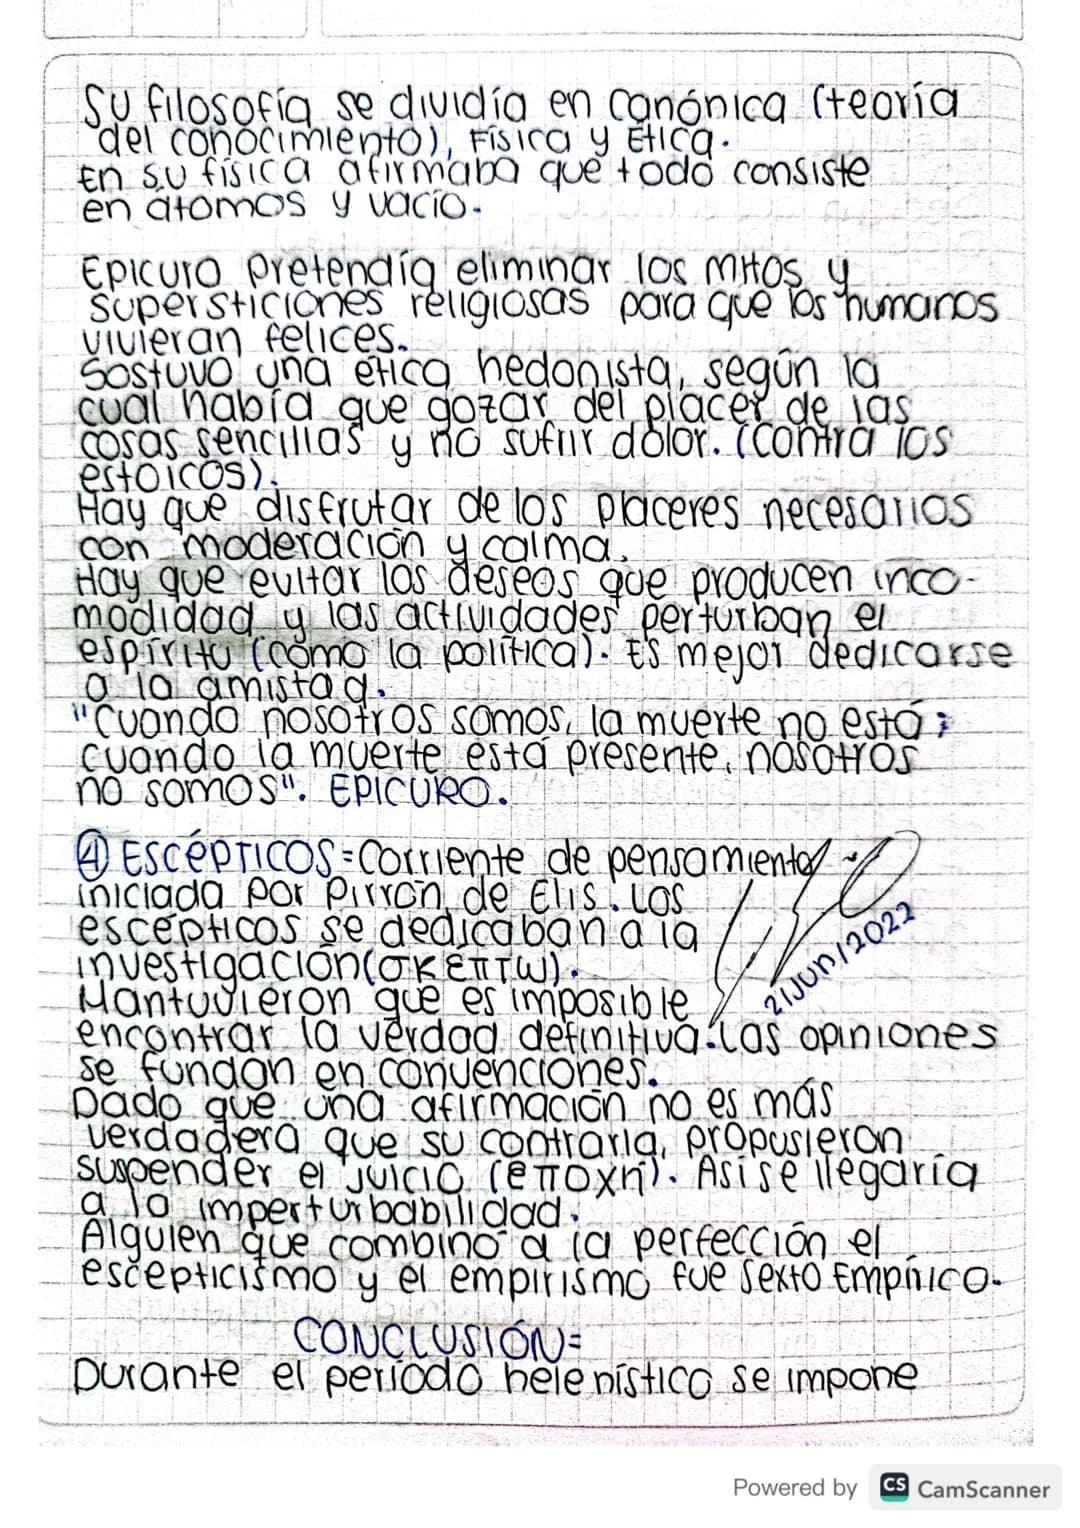 Su filosofía se dividía en canónica (teoría
del conocimiento), Física y Ética.
En su física afirmaba que todo consiste
en átomos y vacío.
Epicuro pretendía eliminar los mitos y
supersticiones religiosas para que los humanos
vivieran felices.
Sostuvo una ética hedonista, según la
cual había que gozar del placer de las
cosas sencillas y no sufrir dolor. (contra los
estoicos).
Hay que disfrutar de los placeres necesarios
con moderación y calma.
Hay que evitar los deseos que producen inco-
modidad y las actividades perturban el
espíritu (como la política). Es mejor dedicarse
a la amistad.
"Cuando nosotros somos, la muerte no está;
cuando la muerte está presente, nosotros
no somos". EPICURO.
④ ESCÉPTICOS=Corriente de pensamiento
iniciada por Pirrón de Elis. Los
escépticos se dedicaban a la
investigación(σκεπτω).
Mantuvieron que es imposible
21/JUN/2022
encontrar la verdad definitiva. Las opiniones
se fundan en convenciones.
Dado que una afirmación no es más
verdadera que su contraria, propusieron
suspender el juicio (εποχη). Así se llegaría
a la imperturbabilidad.
Alguien que combinó a la perfección el
escepticismo y el empirismo fue Sexto Empírico.
CONCLUSIÓN=
Durante el período helenístico se impone
Powered by CS CamScanner